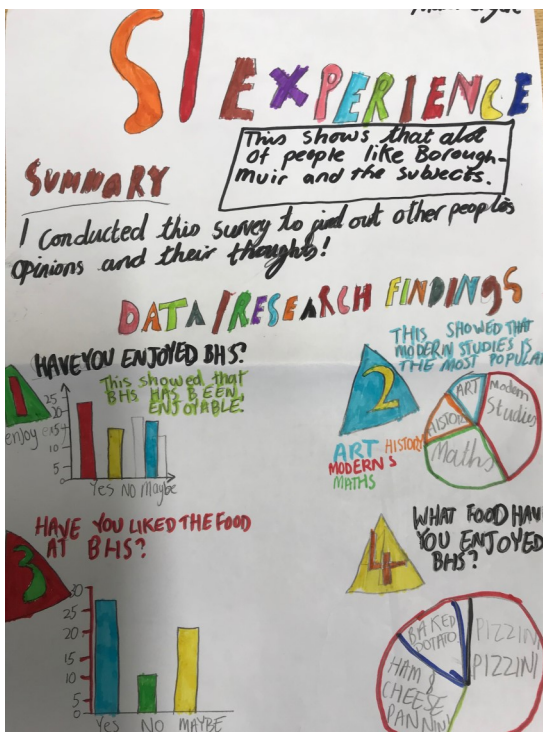 S1 EXPERIENCE
This shows that alot
of people like Borough-
muir and the subjects.
SUMMARY
I conducted this survey to find out other peoples
opinions and their thoughts!
DATA/RESEARCH FINDINGS
1
HAVE YOU ENJOYED BHS?
This showed that
BHS HAS BEEN
ENJOYABLE.
enjoy
25
20
15
10
5
0
Yes No Maybe
2
THIS SHOWED THAT
MODERN STUDIES IS
THE MOST POPULA
ART HISTORY
MODERN S
MATHS
ART
Modern
Studies
HISTORY
Maths
3
HAVE YOU LIKED THE FOOD
AT BHS?
30
25
20
15
10
5
0
Yes NO MAYBE
4
WHAT FOOD HAV
YOU ENJOYED
BHS?
BAKED
POTATO
PIZZINI
PIZZINI
HAM &
CHEESE
PANNINI